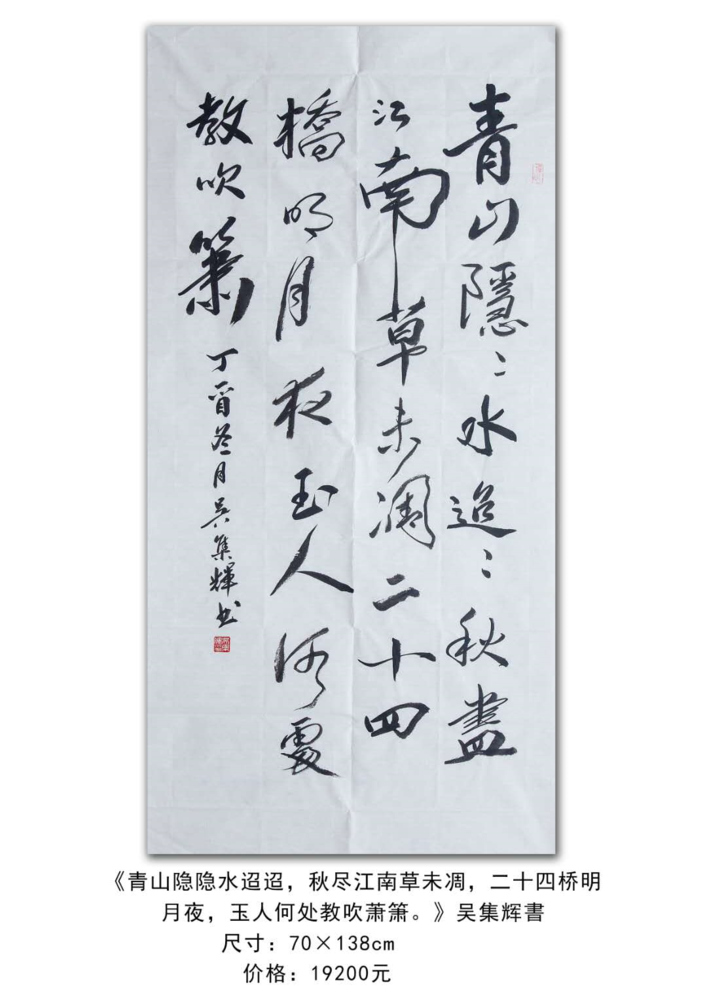 青山隱〻水迢〻秋盡
江南草未凋二十四
橋明月夜玉人何處
教吹簫
丁酉冬月吳集輝书
《青山隐隐水迢迢，秋尽江南草未凋，二十四桥明
月夜，玉人何处教吹萧箫。》吴集辉書
尺寸：70×138cm
价格：19200元